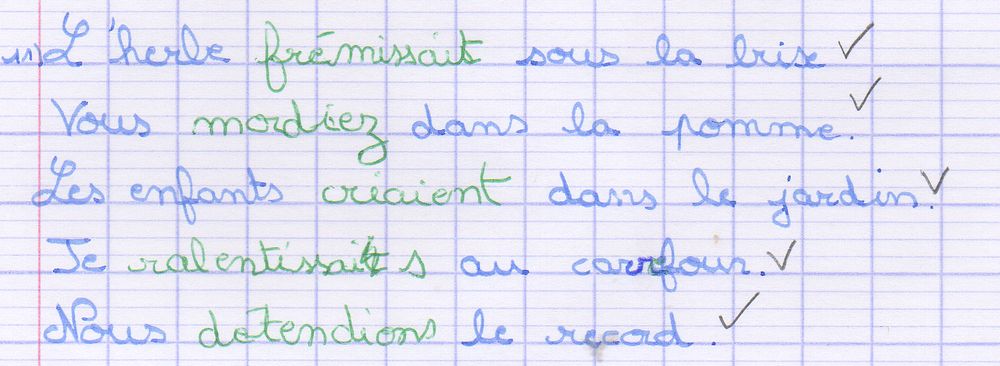 11) L'herbe frémissait sous la brise
Vous mordiez dans la pomme.
Les enfants criaient dans le jardin.
Je ralentissais au carrefour.
Nous détendions le record.